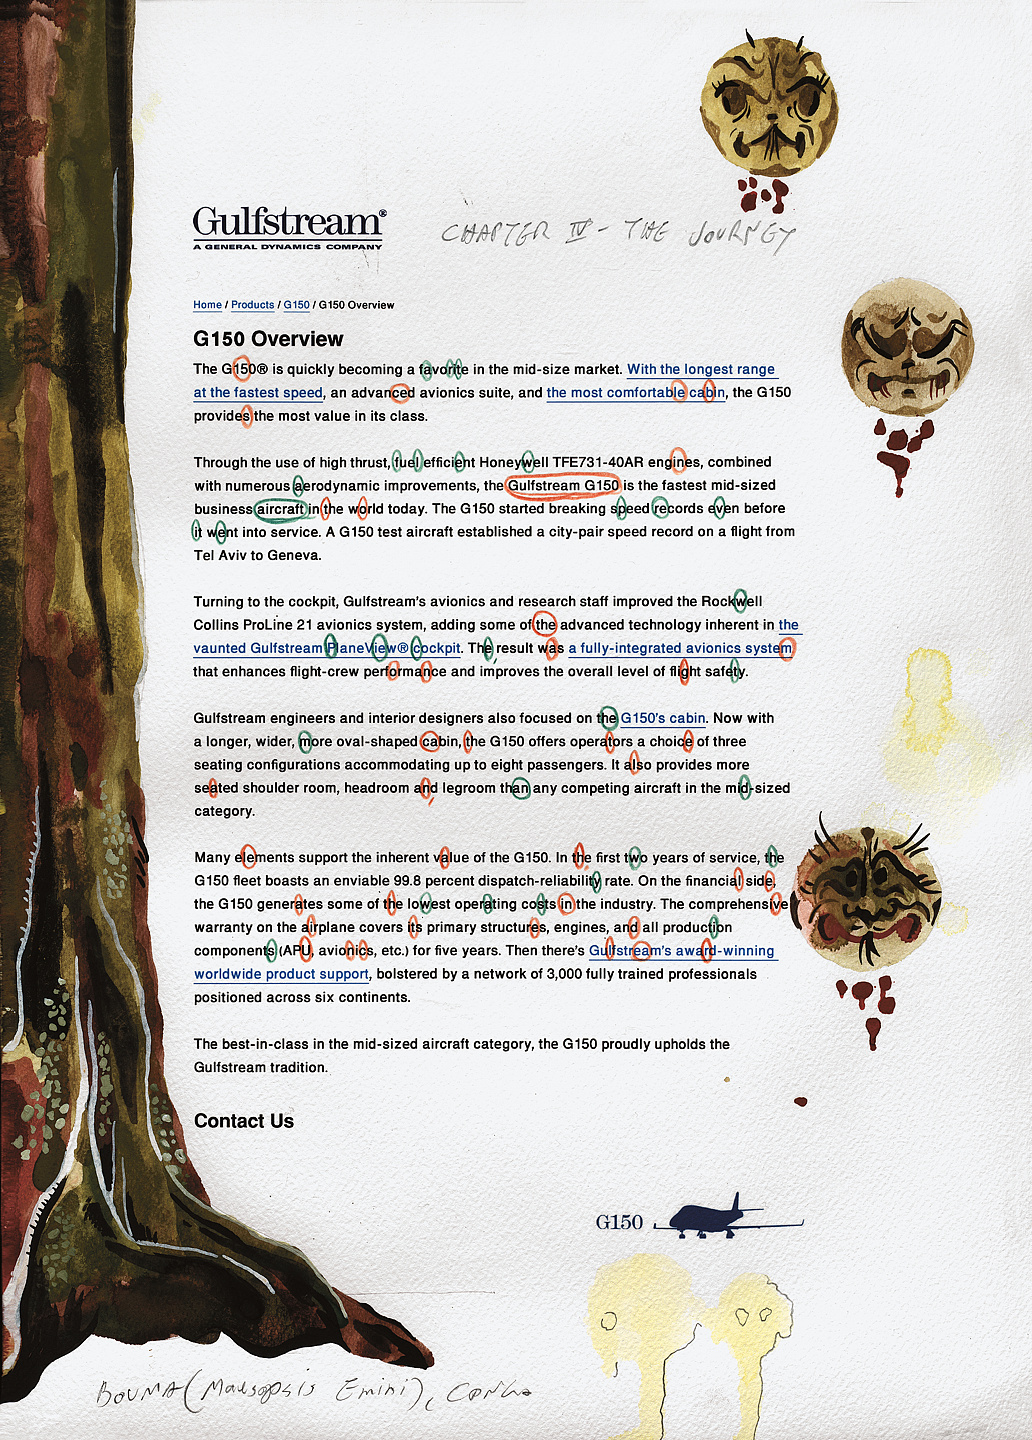 Gulfstream®
A GENERAL DYNAMICS COMPANY
CHAPTER IV - THE JOURNEY
Home / Products / G150 / G150 Overview
G150 Overview
The G150® is quickly becoming a favorite in the mid-size market. With the longest range
at the fastest speed, an advanced avionics suite, and the most comfortable cabin, the G150
provides the most value in its class.
Through the use of high thrust, fuel efficient Honeywell TFE731-40AR engines, combined
with numerous aerodynamic improvements, the Gulfstream G150 is the fastest mid-sized
business aircraft in the world today. The G150 started breaking speed records even before
it went into service. A G150 test aircraft established a city-pair speed record on a flight from
Tel Aviv to Geneva.
Turning to the cockpit, Gulfstream's avionics and research staff improved the Rockwell
Collins ProLine 21 avionics system, adding some of the advanced technology inherent in the
vaunted Gulfstream PlaneView® cockpit. The result was a fully-integrated avionics system
that enhances flight-crew performance and improves the overall level of flight safety.
Gulfstream engineers and interior designers also focused on the G150's cabin. Now with
a longer, wider, more oval-shaped cabin, the G150 offers operators a choice of three
seating configurations accommodating up to eight passengers. It also provides more
seated shoulder room, headroom and legroom than any competing aircraft in the mid-sized
category.
Many elements support the inherent value of the G150. In the first two years of service, the
G150 fleet boasts an enviable 99.8 percent dispatch-reliability rate. On the financial side,
the G150 generates some of the lowest operating costs in the industry. The comprehensive
warranty on the airplane covers its primary structures, engines, and all production
components (APU, avionics, etc.) for five years. Then there's Gulfstream's award-winning
worldwide product support, bolstered by a network of 3,000 fully trained professionals
positioned across six continents.
The best-in-class in the mid-sized aircraft category, the G150 proudly upholds the
Gulfstream tradition.
Contact Us
G150
BOUMA (Maesopsis Emini), CONGO